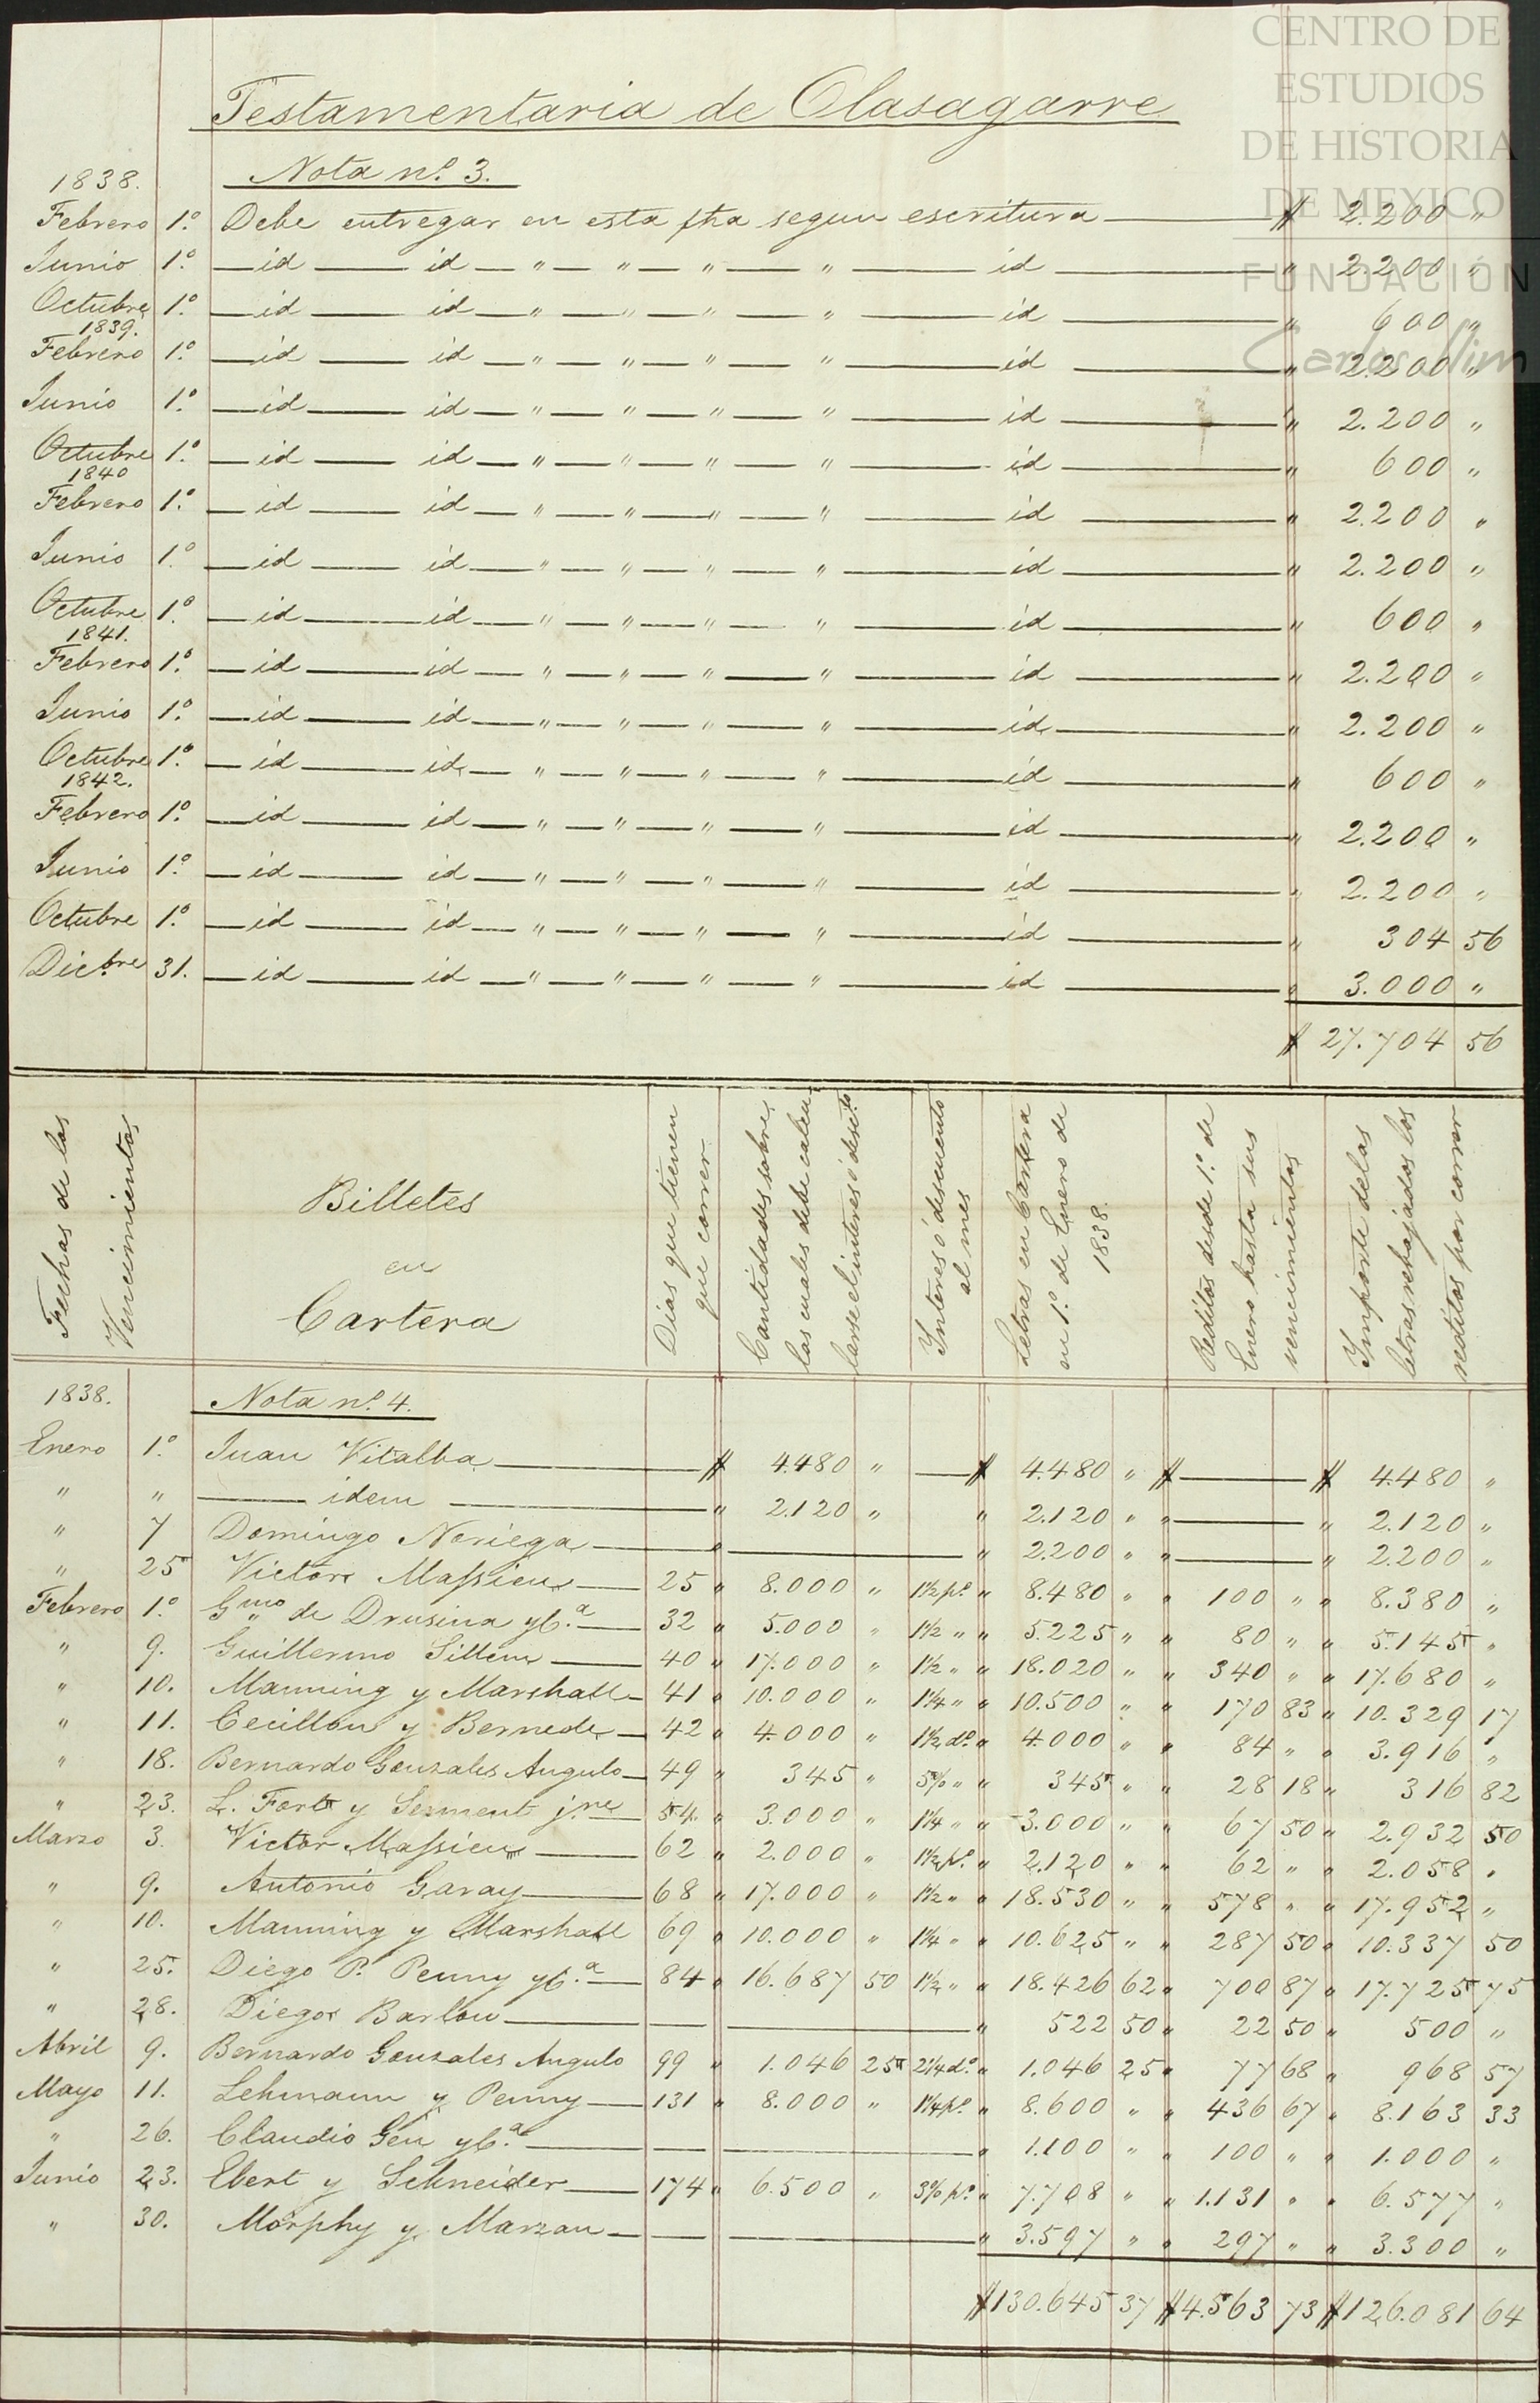 CENTRO DE
ESTUDIOS
DE HISTORIA
DE MEXICO
FUNDACIÓN
Carlos Slim
Testamentaria de Olasagarre
Nota nº 3.
1838.
Febrero 1º Debe entregar en esta fha segun escritura $ 2.200 "
Junio 1º id id " " " " id " 2.200 "
Octubre 1º id id " " " " id " 600 "
1839.
Febrero 1º id id " " " " id " 2.200 "
Junio 1º id id " " " " id " 2.200 "
Octubre 1º id id " " " " id " 600 "
1840
Febrero 1º id id " " " " id " 2.200 "
Junio 1º id id " " " " id " 2.200 "
Octubre 1º id id " " " " id " 600 "
1841.
Febrero 1º id id " " " " id " 2.200 "
Junio 1º id id " " " " id " 2.200 "
Octubre 1º id id " " " " id " 600 "
1842.
Febrero 1º id id " " " " id " 2.200 "
Junio 1º id id " " " " id " 2.200 "
Octubre 1º id id " " " " id " 304 56
Dicbre 31. id id " " " " id " 3.000 "
$ 27.704 56
Fechas de los
Vencimientos
Billetes
en
Cartera
Dias que tienen
que correr
Cantidades sobre
las cuales debe calcu
larse el interes ó descto
Interes ó descuento
al mes
Letras en Cartera
en 1º de Enero de
1838.
Reditos desde 1º de
Enero hasta sus
vencimientos
Importe de las
letras rebajados los
reditos por correr
1838. Nota nº 4.
Enero 1º Juan Vitalba $ 4.480 " $ 4.480 " $ $ 4.480 "
" " idem " 2.120 " " 2.120 " " " 2.120 "
" 7 Domingo Noriega " " 2.200 " " " 2.200 "
" 25 Victor Massieu 25 " 8.000 " 1½ p% " 8.480 " " 100 " " 8.380 "
Febrero 1º Gmo de Drusina yCª 32 " 5.000 " 1½ " " 5.225 " " 80 " " 5.145 "
" 9. Guillermo Sillem 40 " 17.000 " 1½ " " 18.020 " " 340 " " 17.680 "
" 10. Manning y Marshall 41 " 10.000 " 1¼ " " 10.500 " " 170 83 " 10.329 17
" 11. Cecillon y Bernede 42 " 4.000 " 1½ dº " 4.000 " " 84 " " 3.916 "
" 18. Bernardo Gonzales Angulo 49 " 345 " 5% " " 345 " " 28 18 " 316 82
" 23. L. Fort y Serment jne 54 " 3.000 " 1¼ " " 3.000 " " 67 50 " 2.932 50
Marzo 3. Victor Massieu 62 " 2.000 " 1½ p% " 2.120 " " 62 " " 2.058 "
" 9. Antonio Garay 68 " 17.000 " 1½ " " 18.530 " " 578 " " 17.952 "
" 10. Manning y Marshall 69 " 10.000 " 1¼ " " 10.625 " " 287 50 " 10.337 50
" 25. Diego P. Penny yCª 84 " 16.687 50 1½ " " 18.426 62 " 700 87 " 17.725 75
" 28. Diego Barlow " 522 50 " 22 50 " 500 "
Abril 9. Bernardo Gonzales Angulo 99 " 1.046 25 2¼ dº " 1.046 25 " 77 68 " 968 57
Mayo 11. Lehmann y Penny 131 " 8.000 " 1¼ p% " 8.600 " " 436 67 " 8.163 33
" 26. Claudio Gen yCª " 1.100 " " 100 " " 1.000 "
Junio 23. Ebert y Schneider 174 " 6.500 " 3% p% " 7.708 " " 1.131 " " 6.577 "
" 30. Morphy y Marzan " 3.597 " " 297 " " 3.300 "
$130.645 37 $4.563 73 $126.081 64